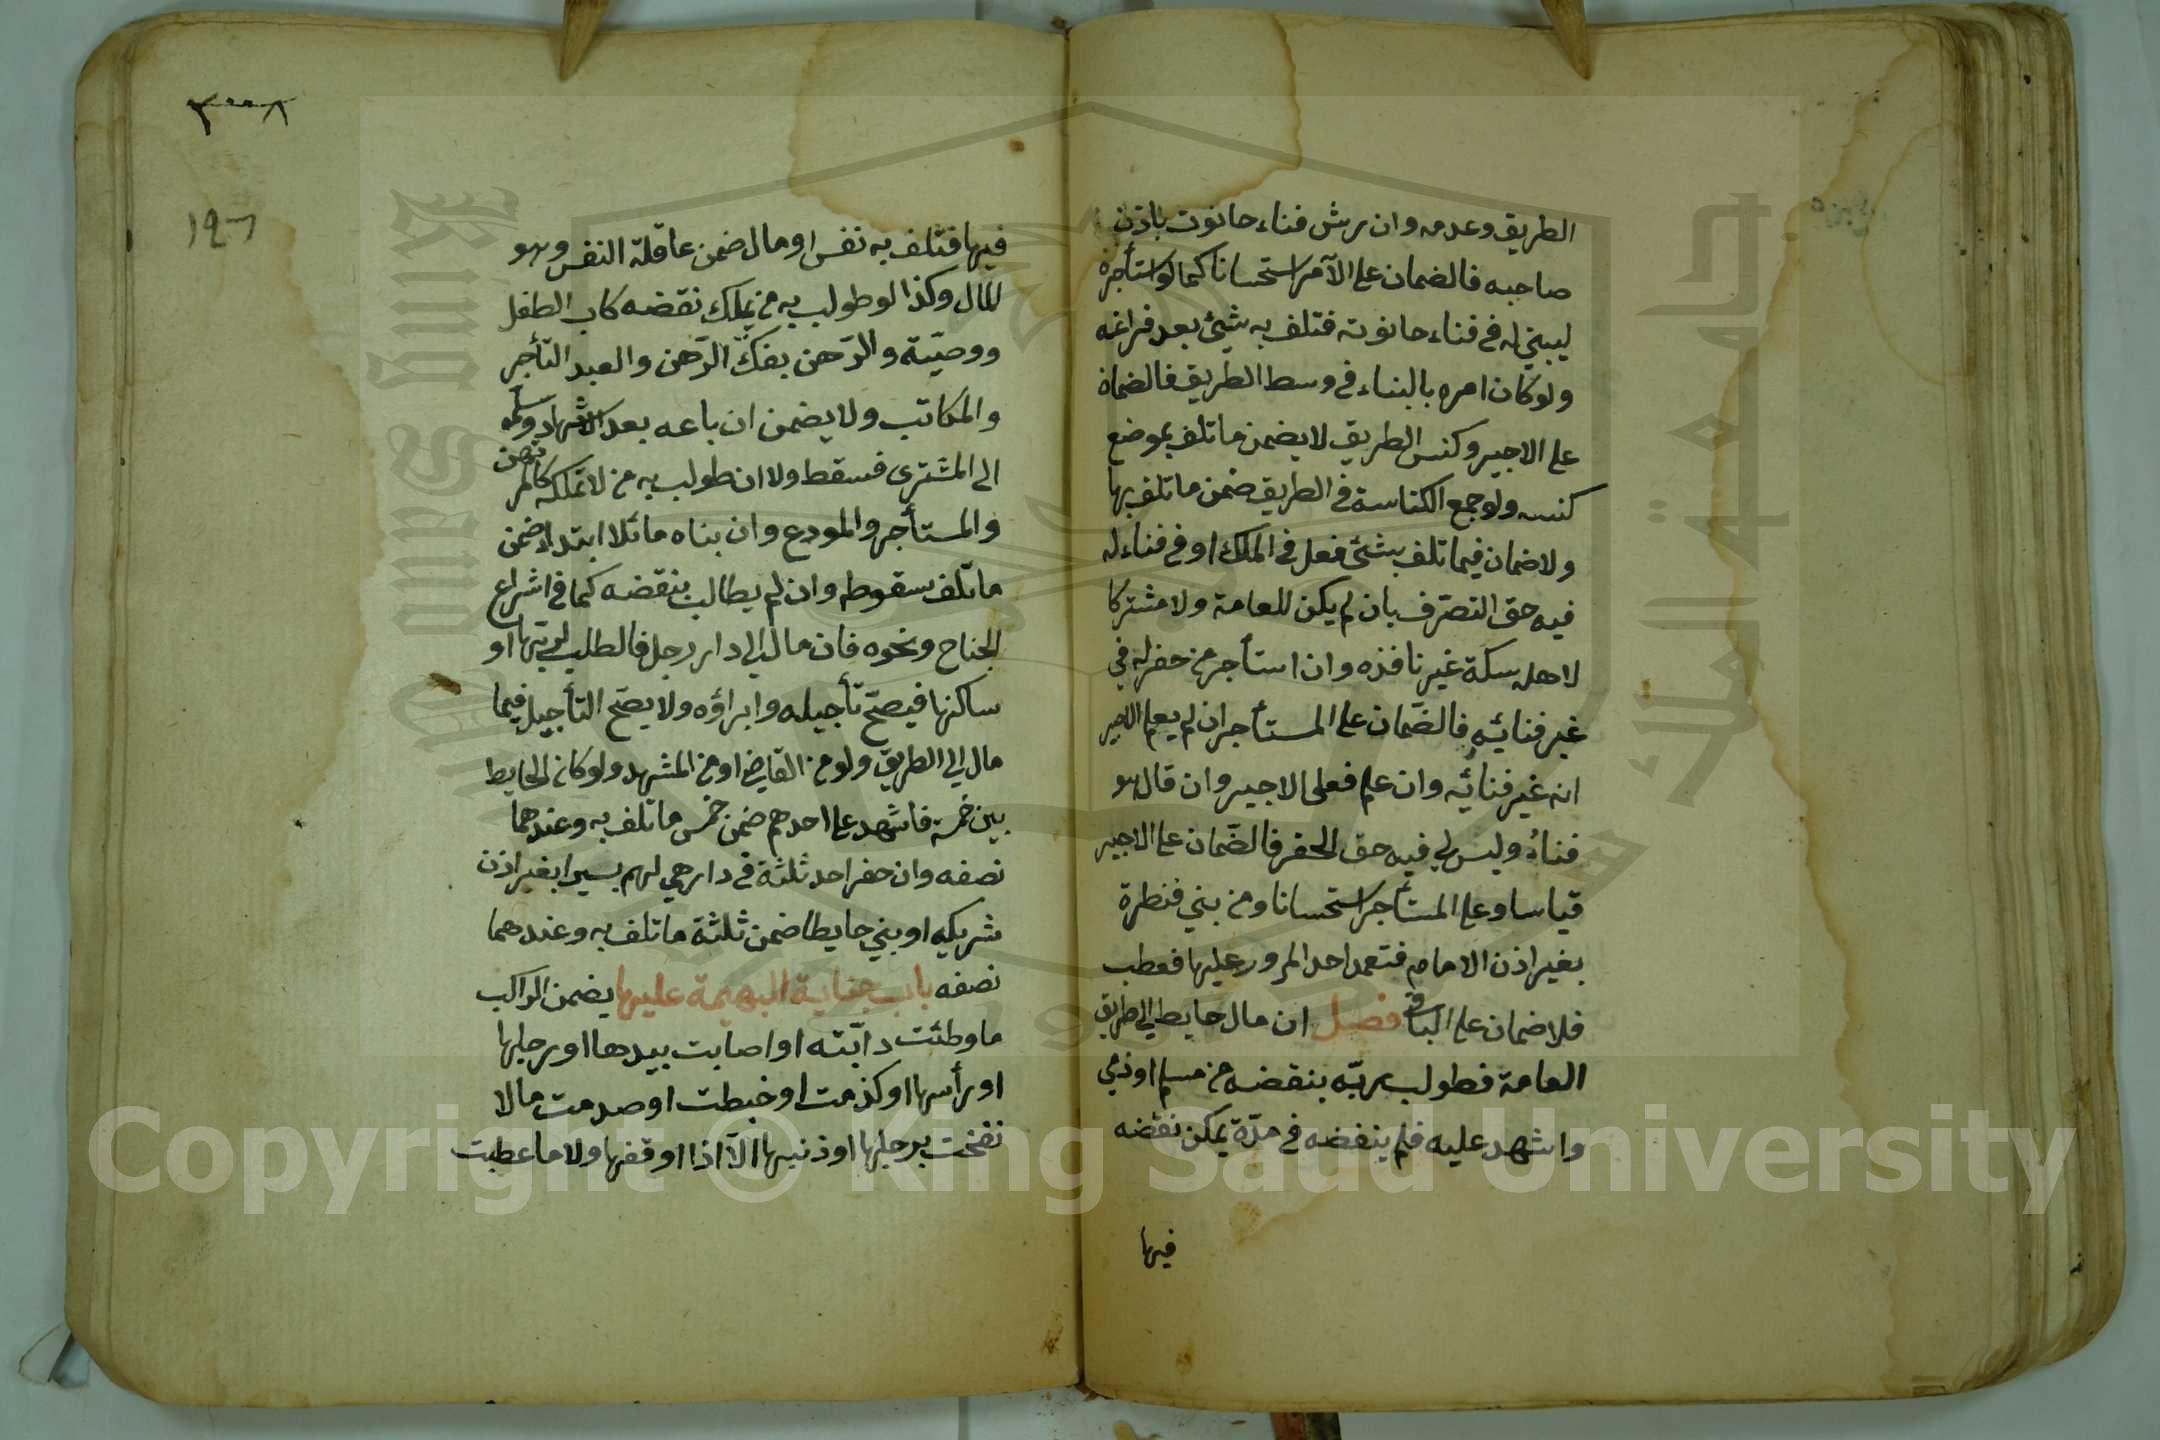 الطريق وعدمه وان رش فناء حانوت باذن
صاحبه فالضمان على الآمر استحسانا كما لو استأجره
ليبني له في فناء حانوته فتلف به شيئ بعد فراغه
ولو كان امره بالبناء في وسط الطريق فالضمان
على الاجير وكنس الطريق لا يضمن ما تلف بموضع
كنسه ولو جمع الكناسة في الطريق ضمن ما تلف بها
ولا ضمان فيما تلف بشئ فعل في الملك او في فناء له
فيه حق التصرّف بان لم يكن للعامة ولا مشتركا
لاهل سكة غير نافذه وان استأجر من حفر له في
غير فنائه فالضّمان على المستأجر ان لم يعلم الاجير
انه غير فنائه وان علم فعلى الاجير وان قال هو
فناؤ وليس لي فيه حق الحفر فالضّمان على الاجير
قياسا وعلى المستأجر استحسانا ومن بني قنطرة
بغير اذن الامام فتعمد احد المرور عليها فعطب
فلا ضمان على الباني فصل ان مال حايط الى طريق
العامة فطولب ربّه بنقضه من مسلم او ذمي
واشهد عليه فلم ينقضه في مدّة يمكن نقضه
فيها
٣٠٠٨
١٩٦
فيها فتلف به نفس او مال ضمن عاقلة النفس وهو
المال وكذا لو طولب به من يملك نقضه كاب الطفل
ووصيّه والرّهن بفكّ الرّهن والعبد التأجر
والمكاتب ولا يضمن ان باعه بعد الاشهاد وسلمه
الى المشتري فسقط ولا ان طولب به من لا تملكه كالمرتهن
والمستأجر والمودع وان بناه مائلا ابتداء ضمن
ما تلف سقوطه وان لم يطالب بنقضه كما في اشراع
الجناح ونحوه فان مال الى دار رجل فالطلب لربّها او
ساكنها فيصحّ تأجيله وابراؤه ولا يصحّ التأجيل فيما
مال الى الطريق ولو من القاضي او من المشهد ولو كان الحايط
بين خمسة فاشهد على احدهم ضمن خمس ما تلف به وعندهما
نصفه وان حفر احد ثلثة في دار هي لهم بيرا بغير اذن
شريكيه او بني حايطا ضمن ثلثة ما تلف به وعندهما
نصفه باب جناية البهيمة عليها يضمن الراكب
ما وطئت دابّته او اصابت بيدها او رجلها
او رأسها او كذمت او خبطت او صدمت ما لا
نفخت برجلها او ذنبها الاّ اذا اوقفها ولا ما عطبت
Copyright © King Saud University